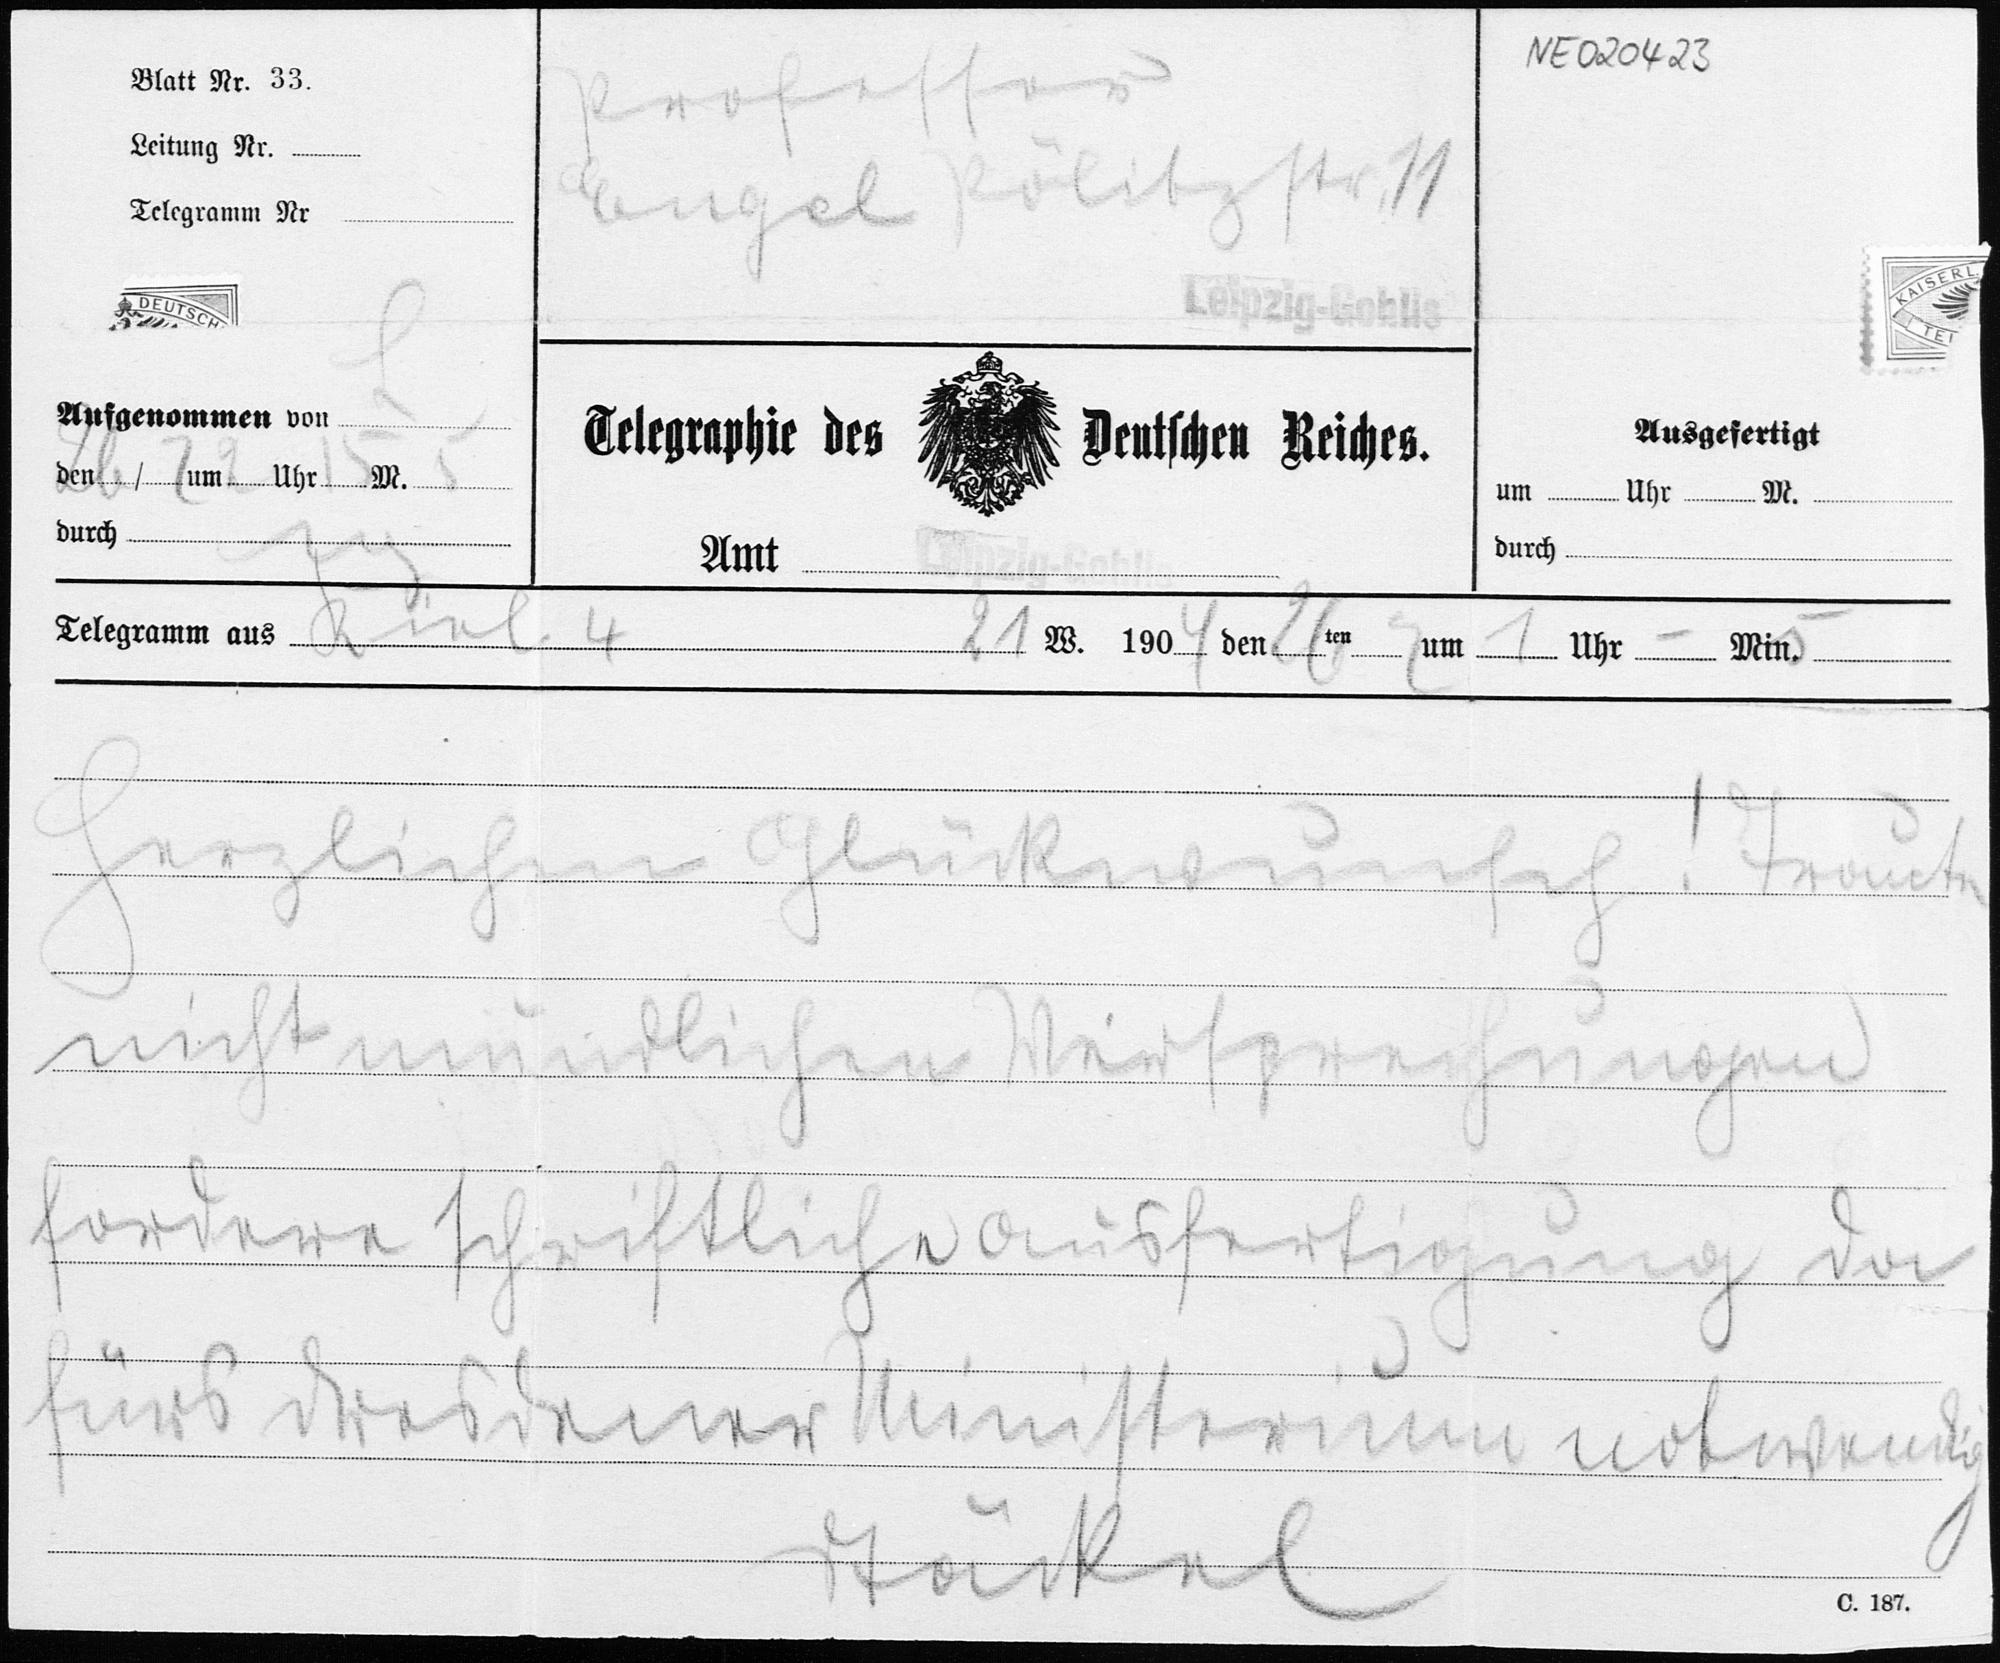 NE020423
Blatt Nr. 33.
Leitung Nr.
Telegramm Nr
Professor
Engel Pölitzstr. 11
Leipzig-Gohlis
DEUTSCH
KAISERL.
TEL
L
Aufgenommen von
den 26 / 7 um 2 Uhr 15 M. S
durch
Telegraphie des Deutschen Reiches.
Amt Leipzig-Gohlis
Ausgefertigt
um Uhr M.
durch
Telegramm aus Kiel 4 21 W. 1904 den 26 ten 7 um 1 Uhr – Min. 5
Herzlichen Glückwunsch! Traute
nicht mündlichen Versprechungen
fordere schriftliche ausfertigung da
fürs dresdener Ministerium notwendig
Stäckel
C. 187.